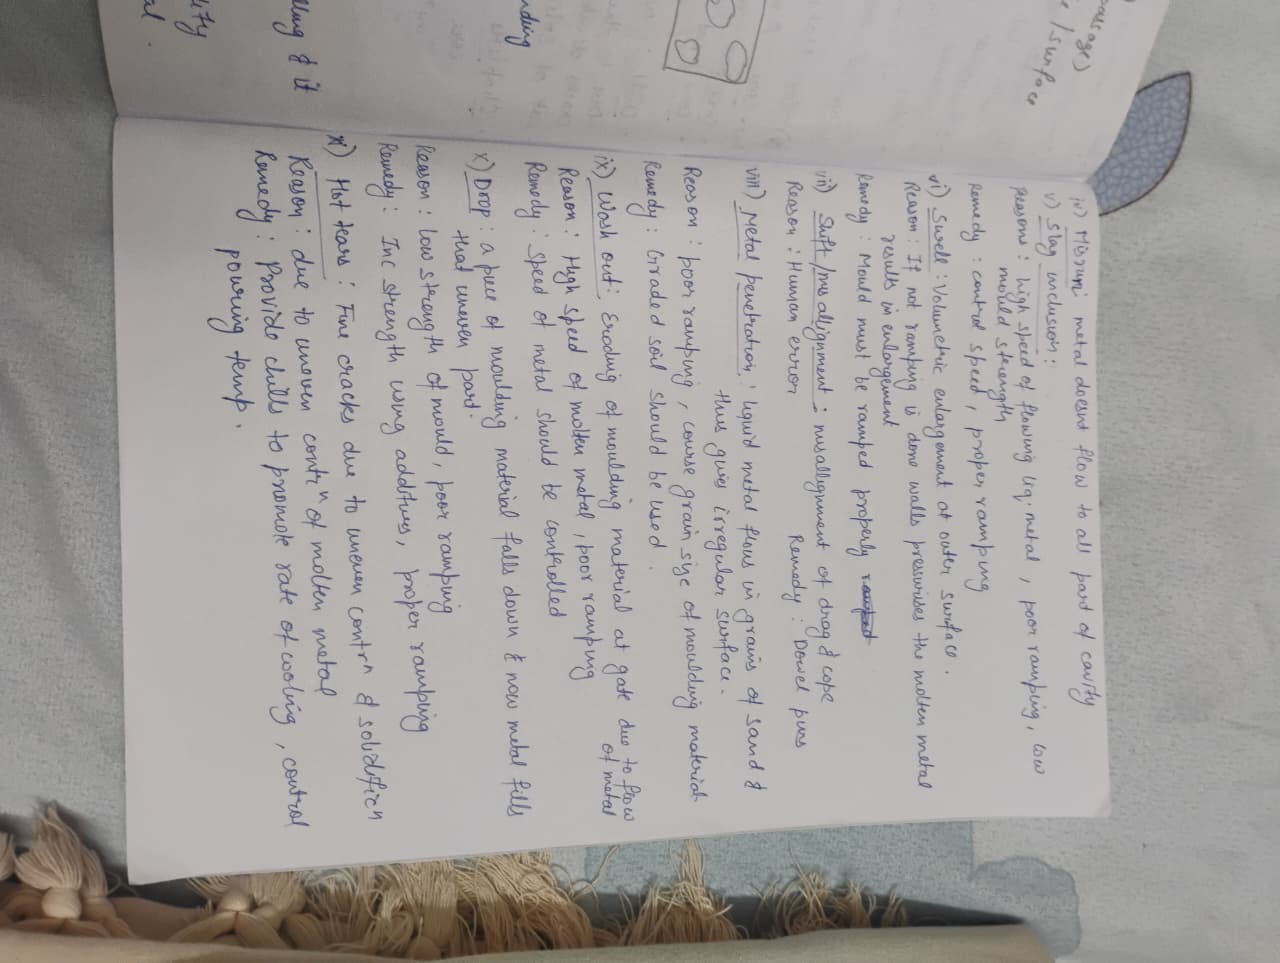 passage)
e / surface
nding
lling & it
ity
al.
iv) Misrun: metal doesnt flow to all part of cavity
v) Slag inclusion:
reasons: high speed of flowing liq. metal, poor ramping, low
mould strength
Remedy: control speed, proper ramping
vi) Swell: Volumetric enlargement at outer surface.
Reason: If not ramping is done walls pressurises the molten metal
results in enlargement
Remedy: Mould must be ramped properly
vii) Shift/misalignment: misallignment of drag & cope
Reason: Human error Remedy: Dowel pins
viii) Metal penetration: liquid metal flows in grains of sand &
thus gives irregular surface.
Reason: poor ramping, course grain size of moulding material
Remedy: Graded soil should be used.
ix) Wash out: Eroding of moulding material at gate due to flow
of metal
Reason: High speed of molten metal, poor ramping
Remedy: Speed of metal should be controlled
x) Drop: a piece of moulding material falls down & now metal fills
that uneven part.
Reason: low strength of mould, poor ramping
Remedy: Inc strength using additives, proper ramping
xi) Hot tears: Fine cracks due to uneven contrn & solidificn
Reason: due to uneven contrn of molten metal
Remedy: Provide chills to promote rate of cooling, control
pouring temp.